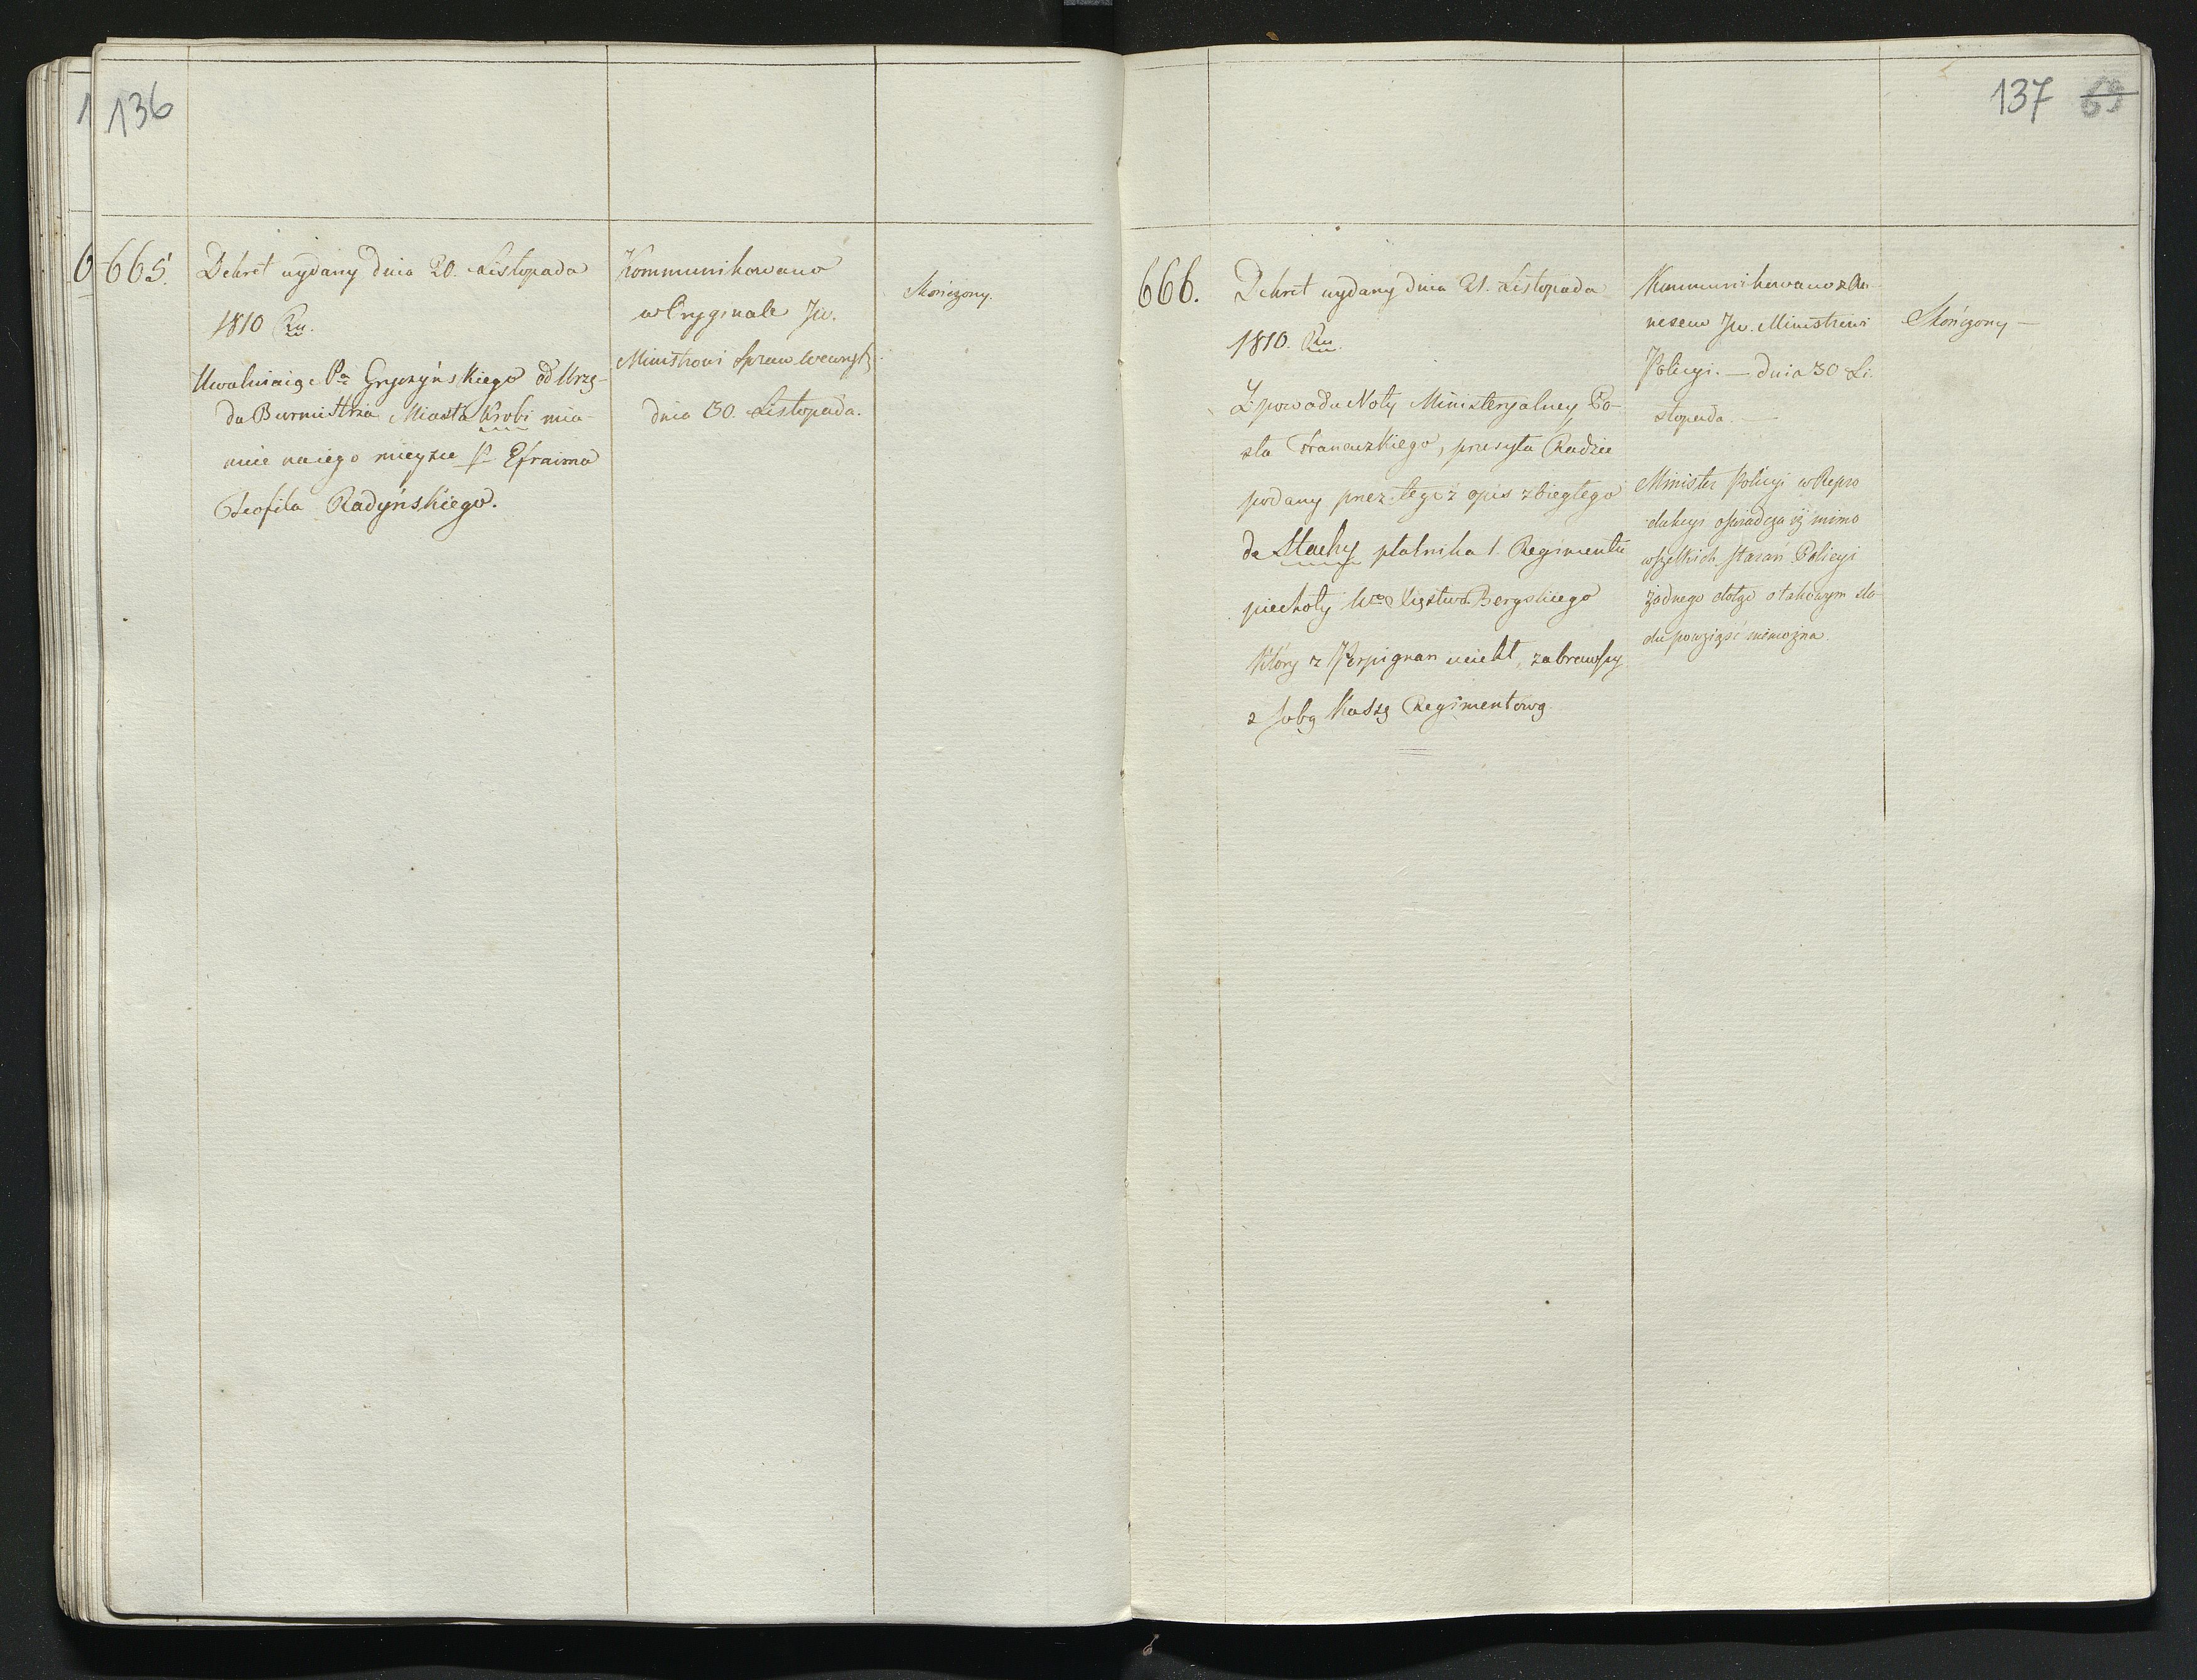 136
665.
Dekret wydany dnia 20. Listopada
1810 Ru.
Uwalniaiąc Pa Gryczyńskiego od Urzę-
du Burmistrza Miasta Krobi mia-
nuie na iego mieysce P. Efraima
Teofila Radyńskiego.
Kommunikowano
w Oryginale Jw.
Ministrowi Spraw Wewnętz.
dnia 30. Listopada.
Skończony.
137 69
666.
Dekret wydany dnia 21. Listopada
1810. Ru.
Z powodu Noty Ministeryalney Po-
sła Francuzkiego, przesyła Radzie
podany przez tegoż opis zbiegłego
de Stachy płatnika 1. Regimentu
piechoty Wgo Xięstwa Bergskiego
który z Perpignan uciekł, zabrawszy
z sobą Kassę Regimentową
Kommunikowano z Do-
nesem Jw. Ministrowi
Policyi. — dnia 30 Li-
stopada. —
Minister Policyi w Repro
dukcyi oświadcza iż mimo
wszelkich starań Policyi
żadnego dotąd o takowym śla-
du powziąść niemożna.
Skończony —